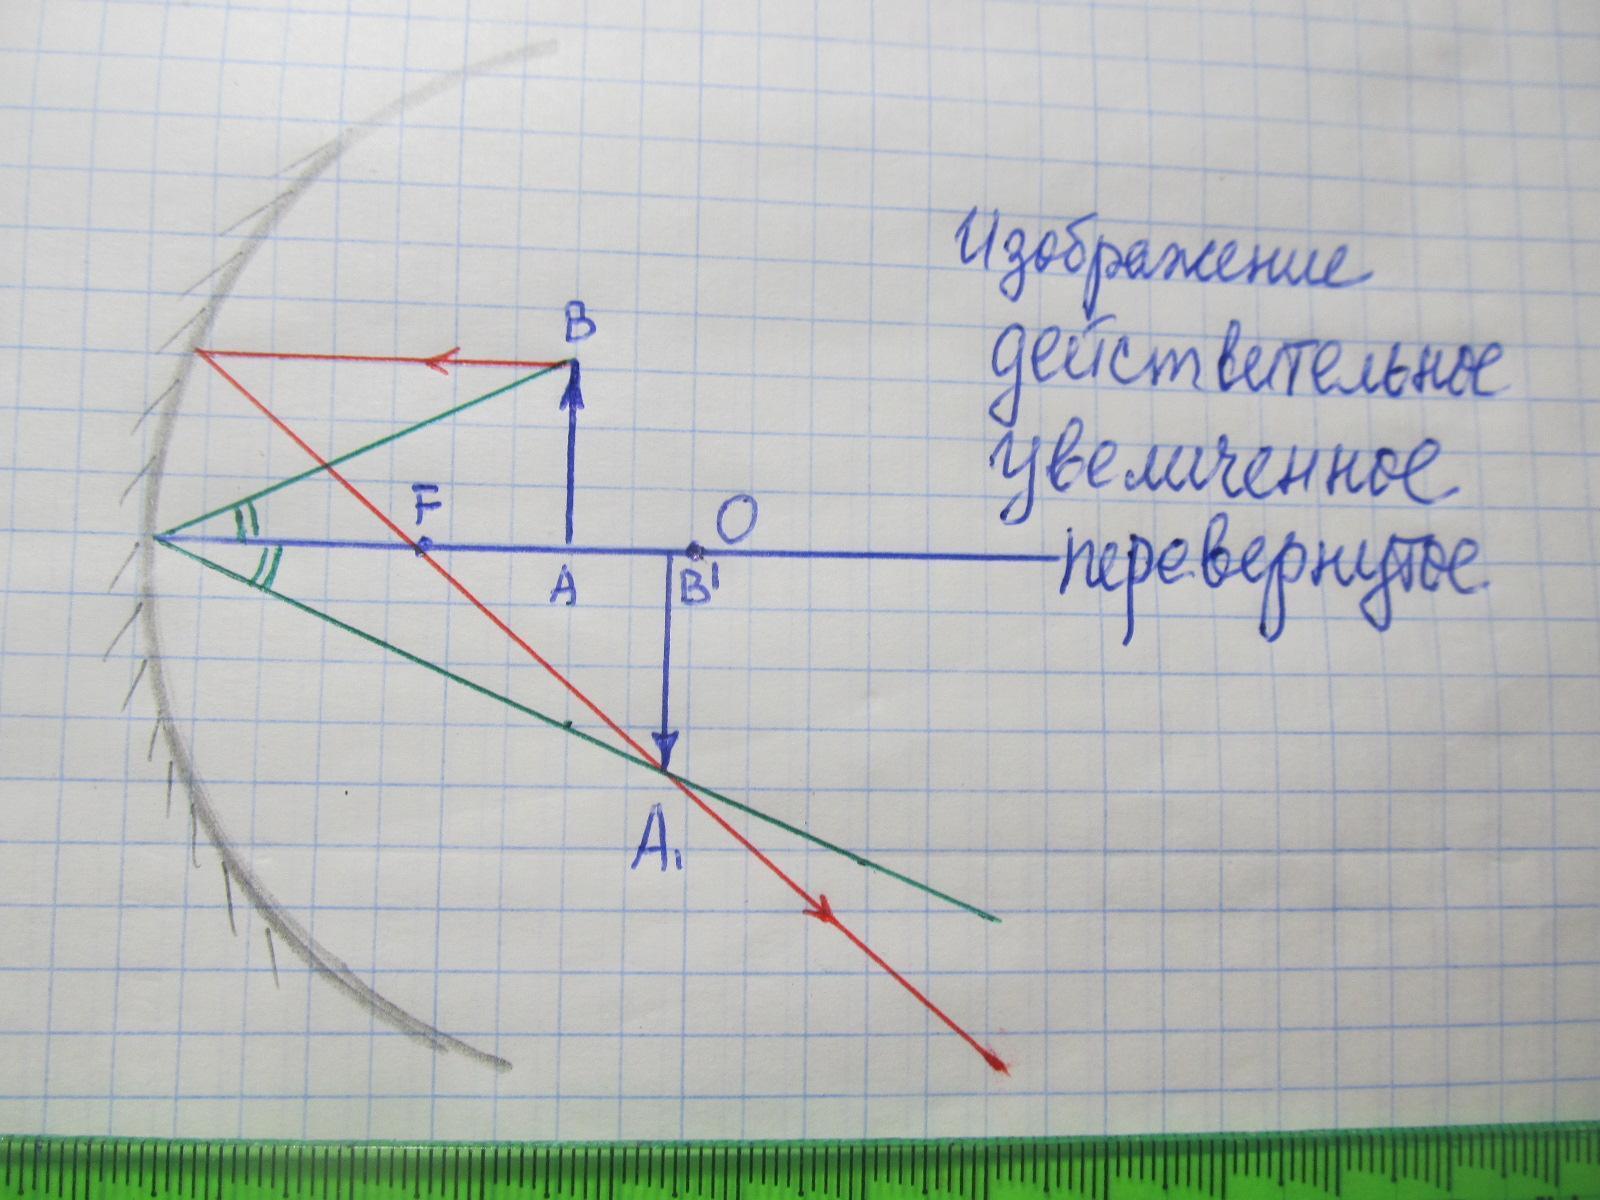 Изображение
действительное
увеличенное
перевернутое
B
F
O
A
B'
A₁